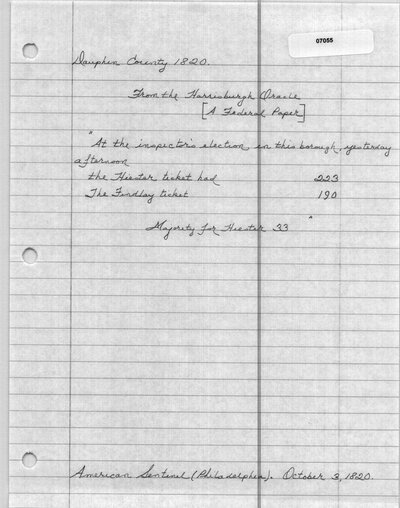 07055
Dauphin County 1820.
From the Harrisburgh Oracle
[A Federal Paper]
"At the inspector's election in this borough, yesterday
afternoon
the Hiester ticket had 223
The Findlay ticket 190
Majority for Hiester 33"
American Sentinel (Philadelphia). October 3, 1820.